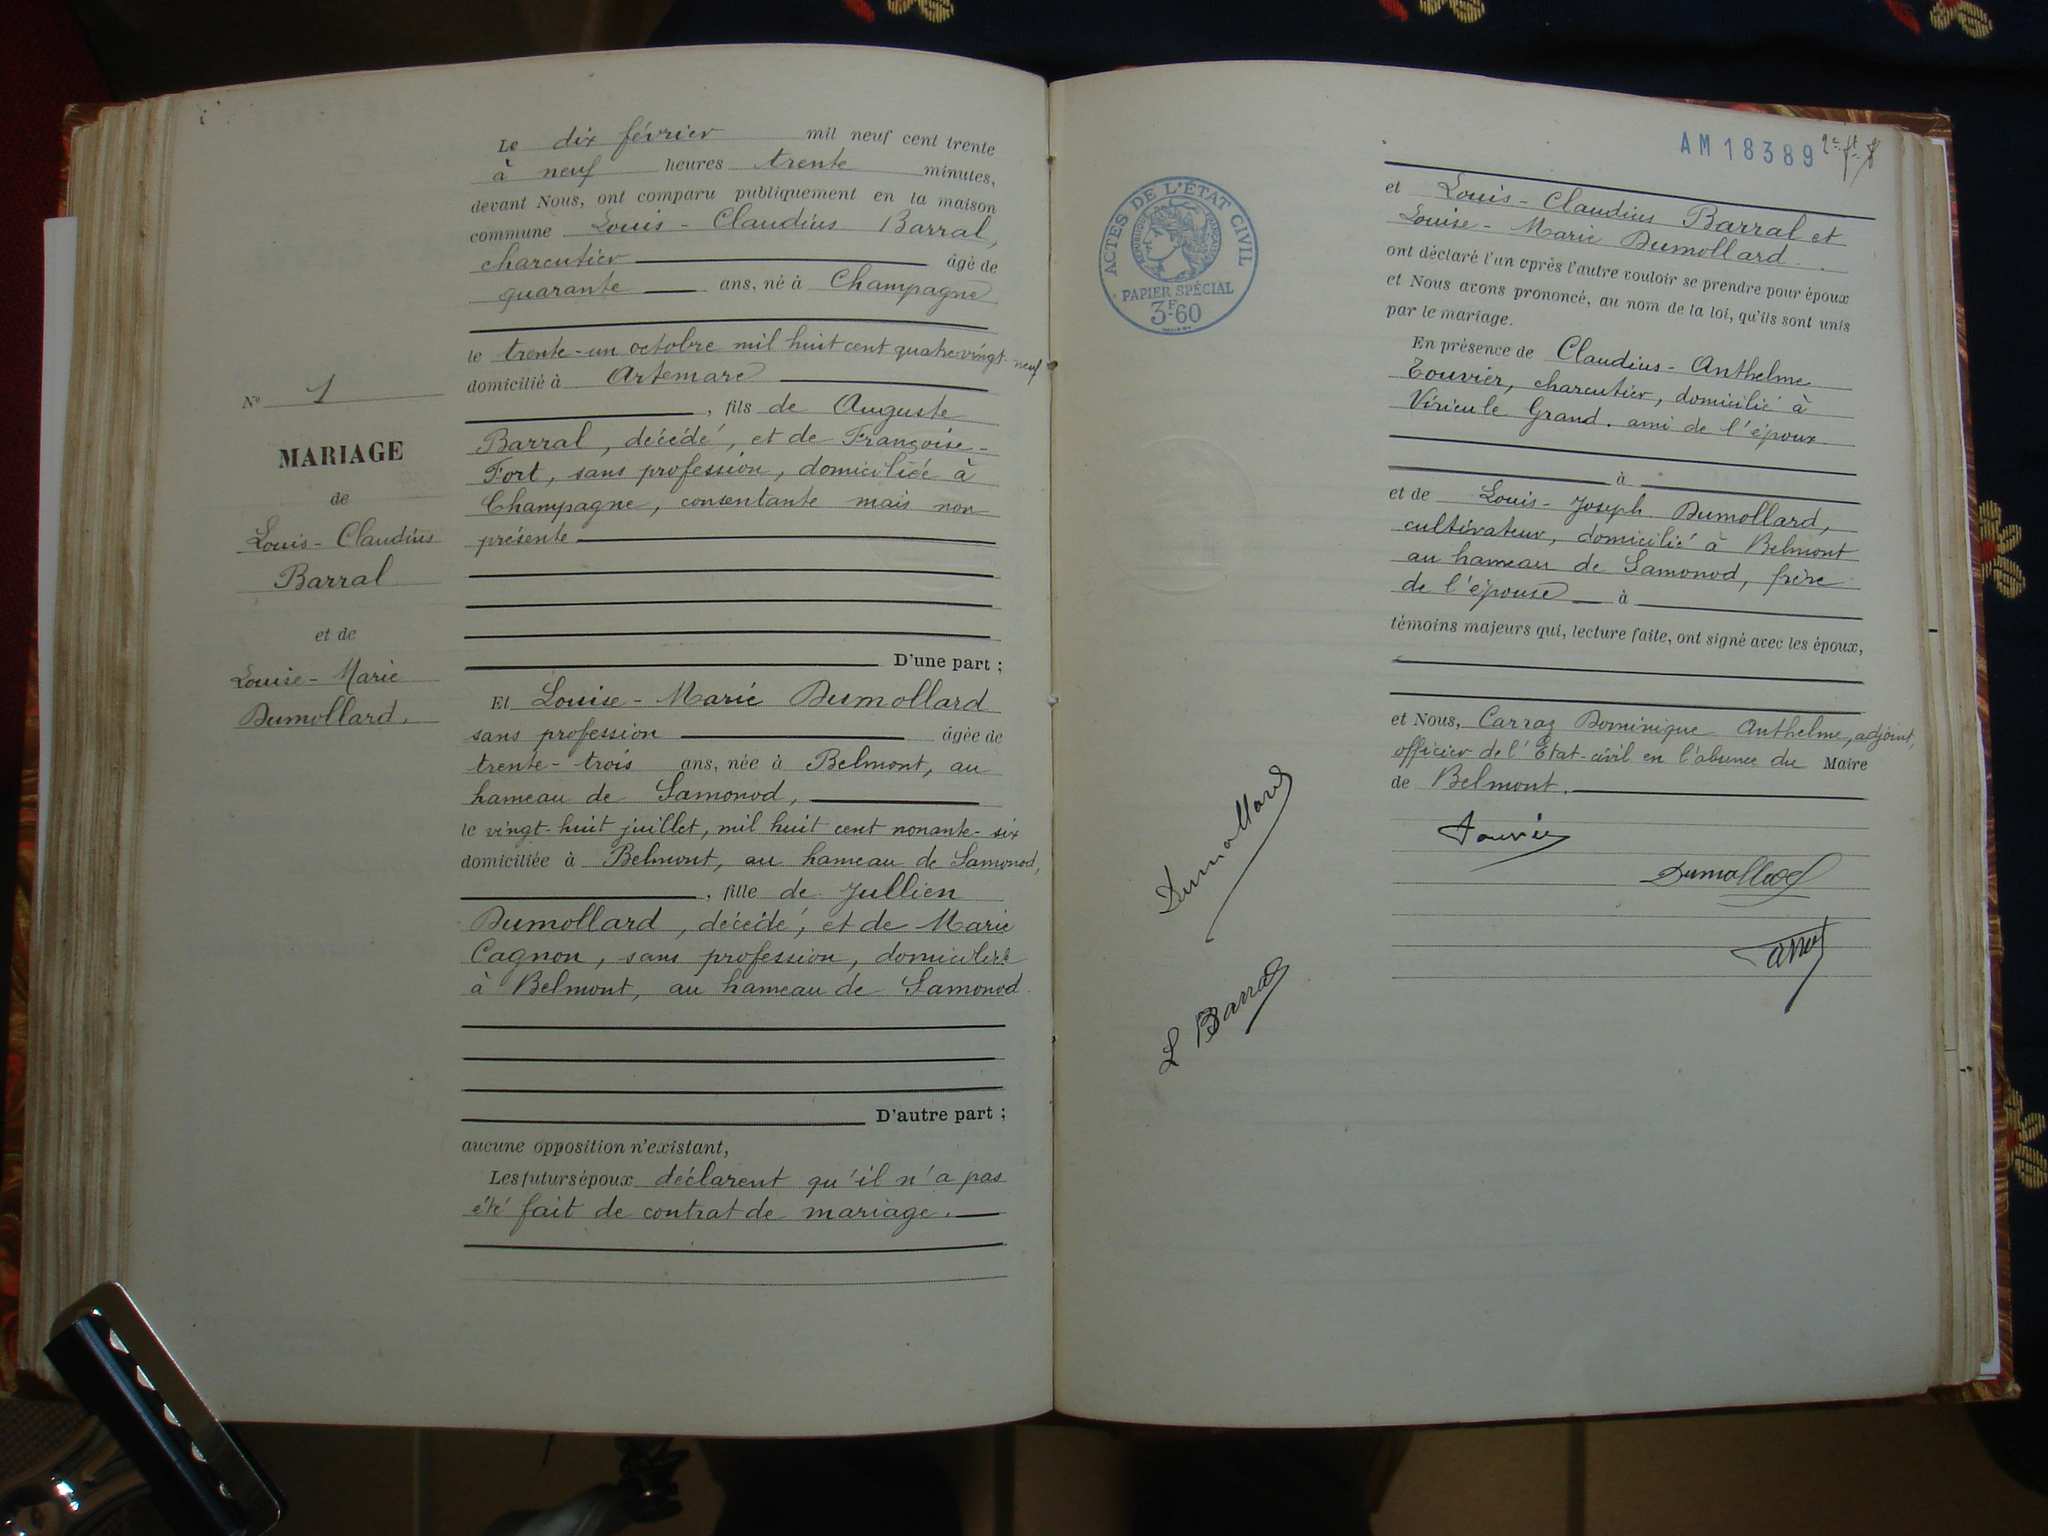 Nº 1
MARIAGE
de
Louis-Claudius
Barral
et de
Louise-Marie
Dumollard.
Le dix février mil neuf cent trente
à neuf heures trente minutes,
devant Nous, ont comparu publiquement en la maison
commune Louis-Claudius Barral,
charcutier âgé de
quarante ans, né à Champagne
le trente-un octobre mil huit cent quatre vingt-neuf
domicilié à Artemare
, fils de Auguste
Barral, décédé, et de Françoise-
Fort, sans profession, domiciliée à
Champagne, consentante mais non
présente
D'une part ;
Et Louise-Marie Dumollard
sans profession âgée de
trente-trois ans, née à Belmont, au
hameau de Samonod,
le vingt-huit juillet, mil huit cent nonante-six
domiciliée à Belmont, au hameau de Samonod,
, fille de Jullien
Dumollard, décédé, et de Marie
Cagnon, sans profession, domiciliée
à Belmont, au hameau de Samonod.
D'autre part ;
aucune opposition n'existant,
Les futurs époux déclarent qu'il n'a pas
été fait de contrat de mariage.
AM 18389
ACTES DE L'ÉTAT CIVIL
RÉPUBLIQUE FRANÇAISE
PAPIER SPÉCIAL
3F60
et Louis-Claudius Barral et
Louise-Marie Dumollard.
ont déclaré l'un après l'autre vouloir se prendre pour époux
et Nous avons prononcé, au nom de la loi, qu'ils sont unis
par le mariage.
En présence de Claudius-Anthelme
Touvier, charcutier, domicilié à
Virieu le Grand. ami de l'époux
à
et de Louis-Joseph Dumollard,
cultivateur, domicilié à Belmont
au hameau de Samonod, frère
de l'épouse à
témoins majeurs qui, lecture faite, ont signé avec les époux,
et Nous, Carraz Dominique Anthelme, adjoint,
officier de l'Etat-civil en l'absence du Maire
de Belmont.
Touvier
Dumollard
Dumollard
L Barral